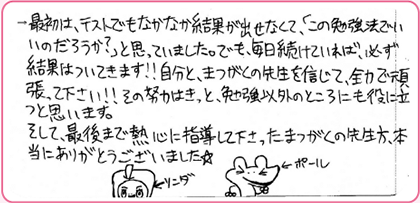 →最初は、テストでもなかなか結果が出せなくて、「この勉強法でい
いのだろうか?」と思っていました。でも、毎日続けていれば、必ず
結果はついてきます!!自分と、まつがくの先生を信じて、全力で頑
張って下さい!!その努力はきっと、勉強以外のところにも役に立
つと思います。
そして、最後まで熱心に指導して下さったまつがくの先生方、本
当にありがとうございました☆
←リンダ
←ポール